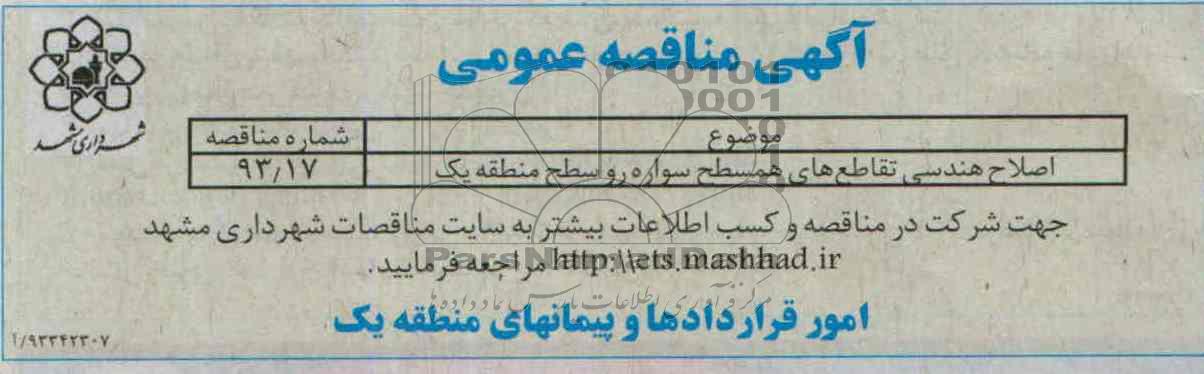 آگهی مناقصه عمومی
شهرداری مشهد
موضوع شماره مناقصه
اصلاح هندسی تقاطع‌های همسطح سواره رو سطح منطقه یک ۹۳/۱۷
جهت شرکت در مناقصه و کسب اطلاعات بیشتر به سایت مناقصات شهرداری مشهد
http:\\ets.mashhad.ir مراجعه فرمایید.
امور قراردادها و پیمانهای منطقه یک
آ/۹۳۳۴۲۳۰۷